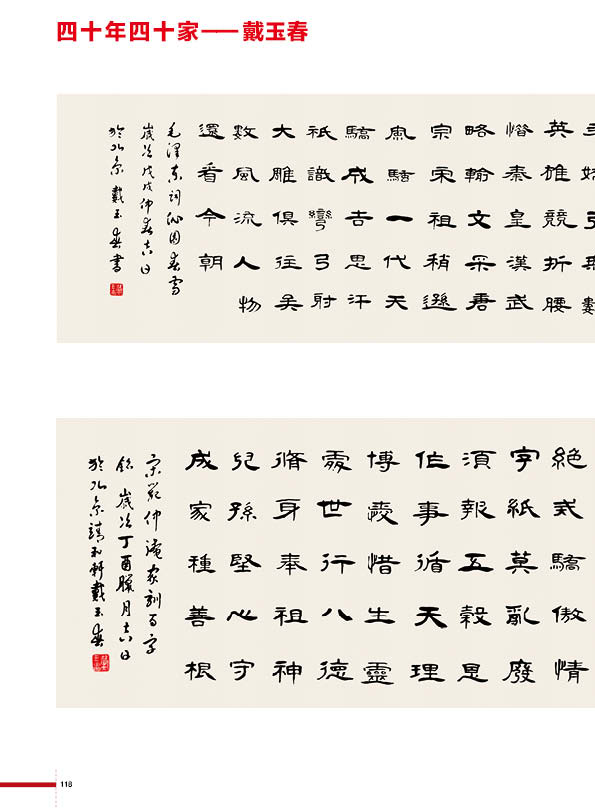 四十年四十家——戴玉春
英雄競折腰
惜秦皇漢武
略輸文采唐
宗宋祖稍遜
風騷一代天
驕成吉思汗
衹識彎弓射
大雕俱往矣
數風流人物
還看今朝
毛澤東詞沁園春雪
歲次戊戌仲春吉日
於北京 戴玉春書
絕戒驕傲情
字紙莫亂廢
須報五穀恩
作事循天理
博愛惜生靈
處世行八德
脩身奉祖神
兒孫堅心守
成家種善根
宋范仲淹家訓百字
銘 歲次丁酉臘月吉日
於北京 戴玉春
118